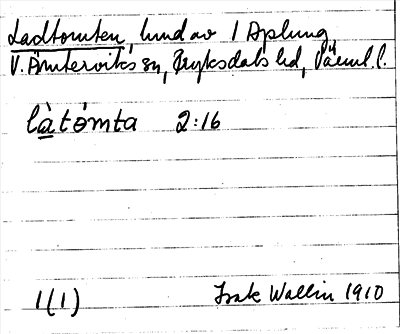 Ladtomten, hmd av 1 Aplung,
V. Ämterviks sn, Fryksdals hd, Värml. l.
là tómta 2:16
1(1) Isak Wallin 1910